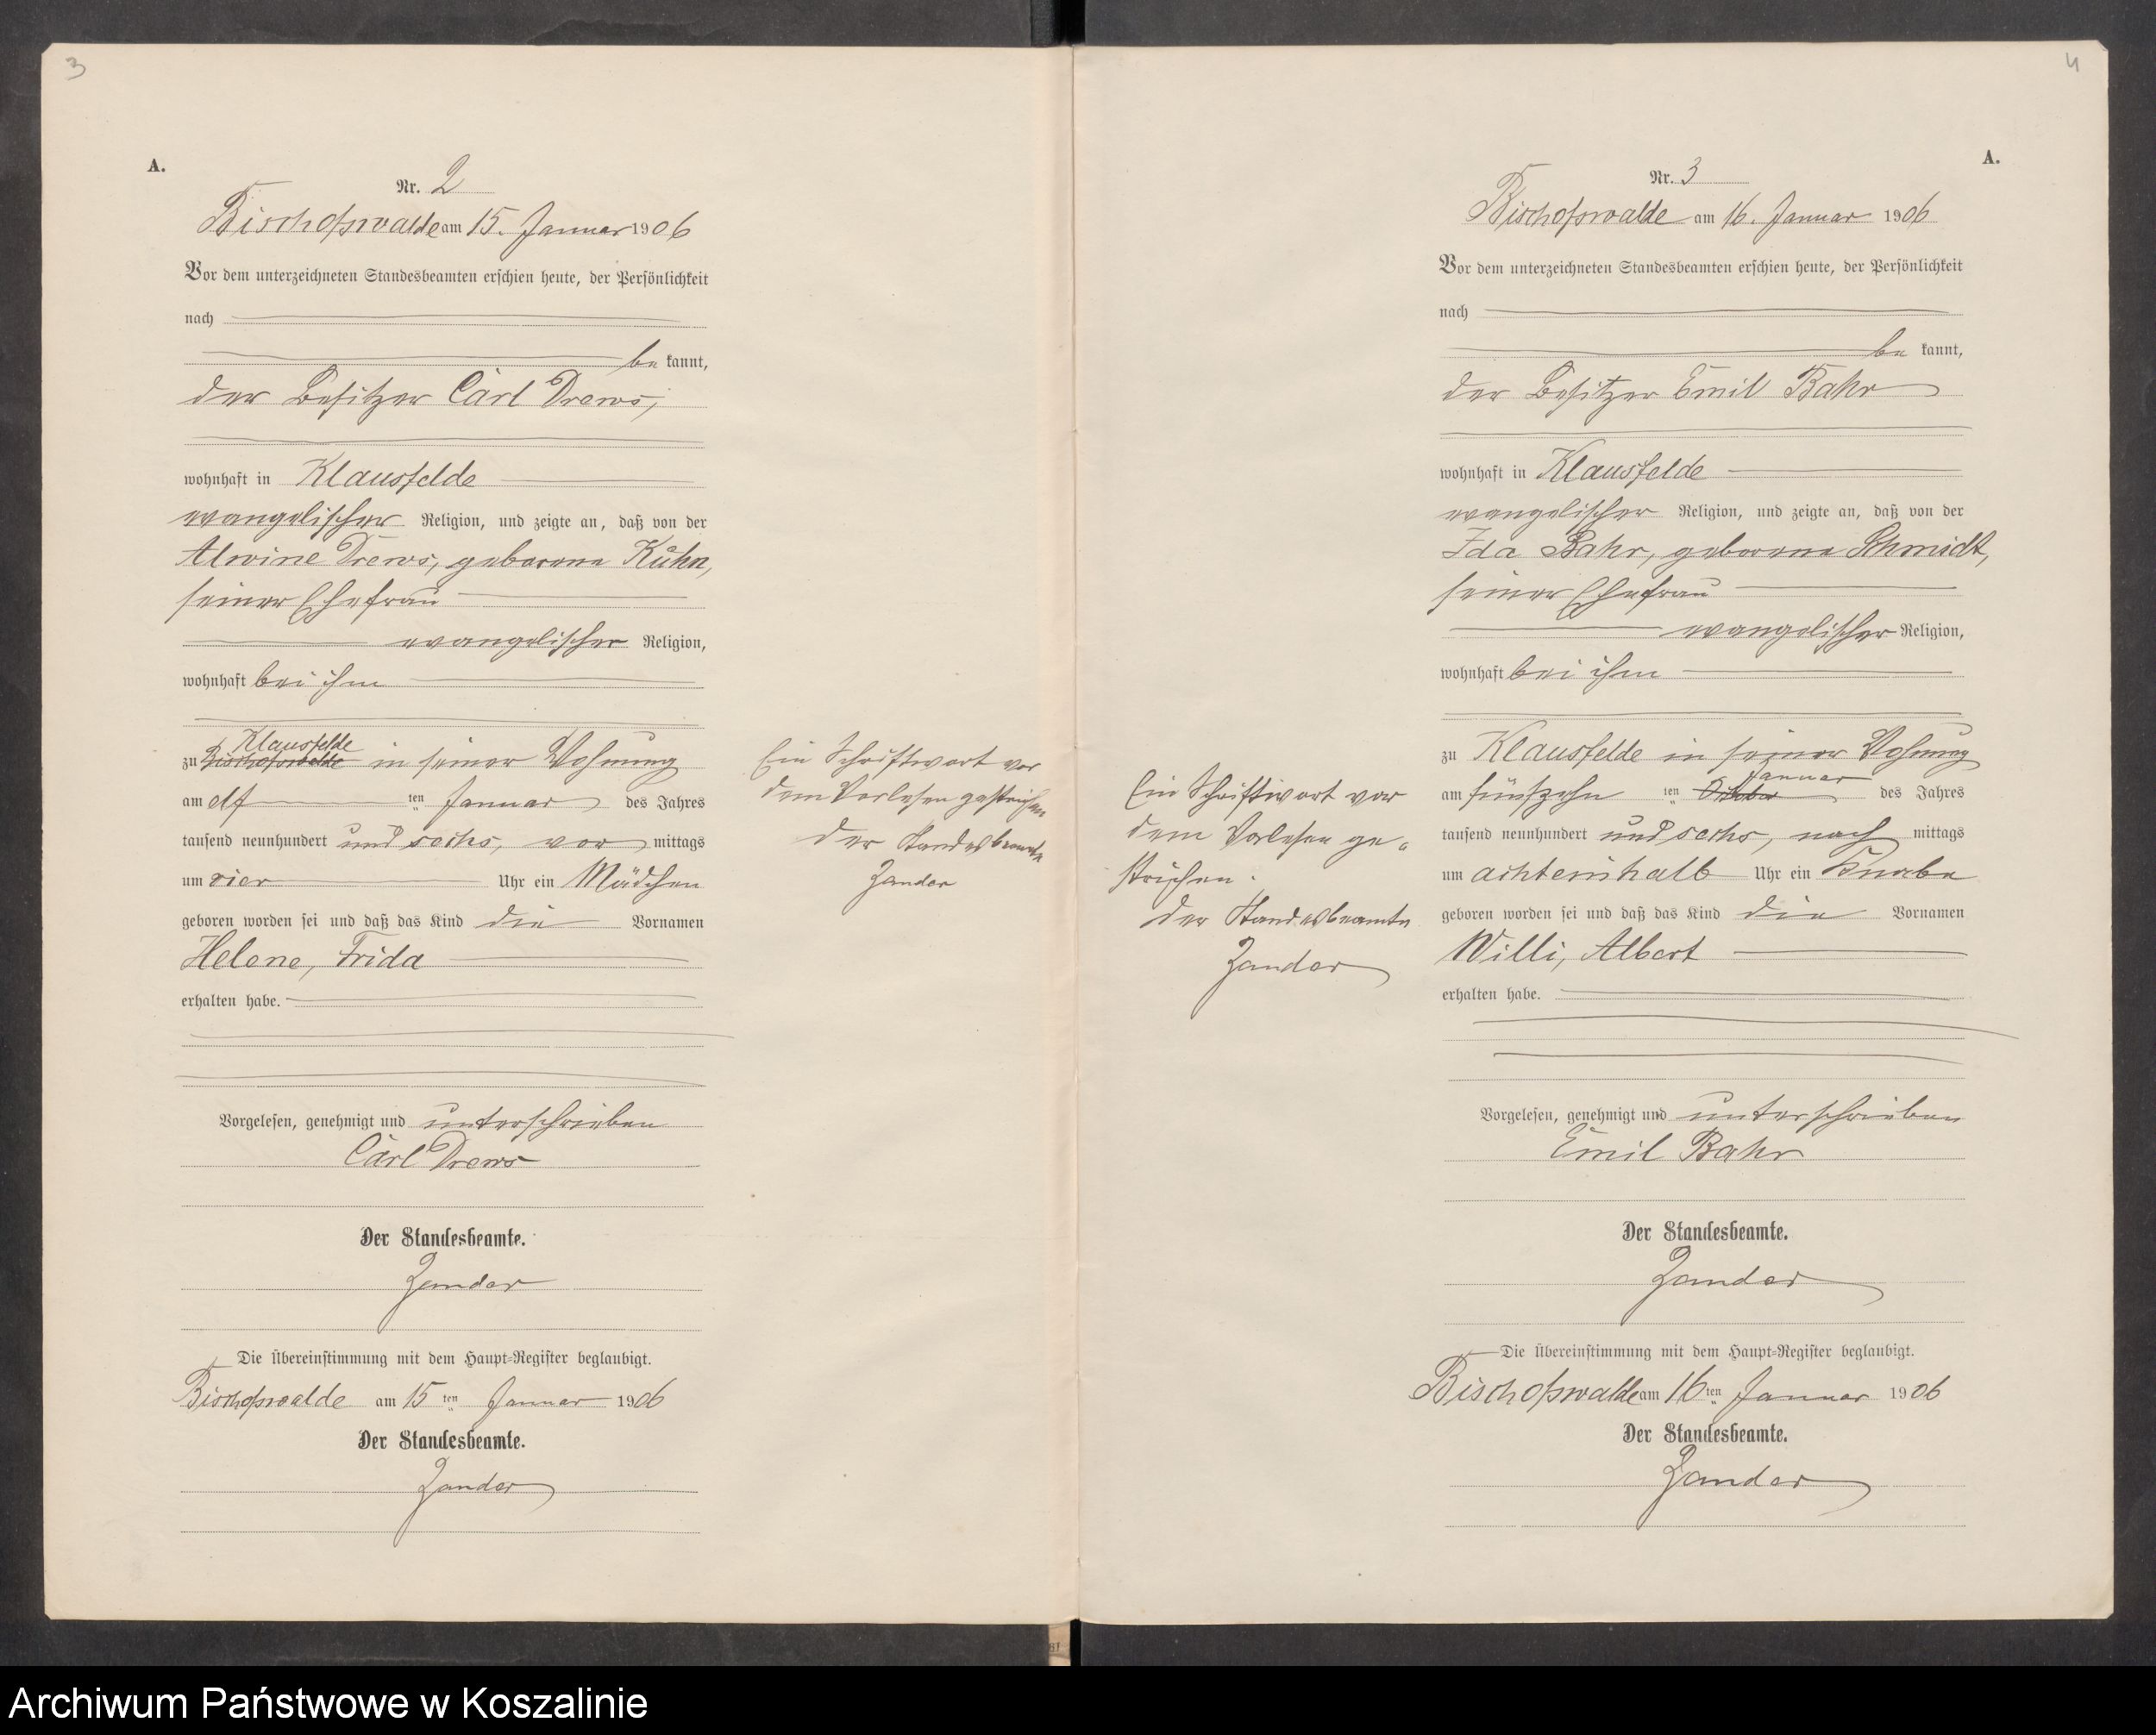 3
A.
Nr. 2
Bischofswalde am 15. Januar 1906
Vor dem unterzeichneten Standesbeamten erschien heute, der Persönlichkeit
nach
be kannt,
der Besitzer Carl Drews,
wohnhaft in Klausfelde
evangelischer Religion, und zeigte an, daß von der
Alwine Drews, geborene Kuhn,
seiner Ehefrau
evangelischer Religion,
wohnhaft bei ihm
Klausfelde
zu Bischofswalde in seiner Wohnung
am elf ten Januar des Jahres
tausend neunhundert und sechs, vor mittags
um vier Uhr ein Mädchen
geboren worden sei und daß das Kind die Vornamen
Helene, Frida
erhalten habe.
Vorgelesen, genehmigt und unterschrieben
Carl Drews
Der Standesbeamte.
Zander
Die Übereinstimmung mit dem Haupt-Register beglaubigt.
Bischofswalde am 15ten Januar 1906
Der Standesbeamte.
Zander
Ein Schriftwort vor
dem Vorlesen gestrichen
Der Standesbeamte
Zander
4
A.
Nr. 3
Bischofswalde am 16. Januar 1906
Vor dem unterzeichneten Standesbeamten erschien heute, der Persönlichkeit
nach
be kannt,
der Besitzer Emil Bahr
wohnhaft in Klausfelde
evangelischer Religion, und zeigte an, daß von der
Ida Bahr, geborene Schmidt,
seiner Ehefrau
evangelischer Religion,
wohnhaft bei ihm
zu Klausfelde in seiner Wohnung
Januar
am fünfzehn ten Oktober des Jahres
tausend neunhundert und sechs, nach mittags
um achteinhalb Uhr ein Knabe
geboren worden sei und daß das Kind die Vornamen
Willi, Albert
erhalten habe.
Vorgelesen, genehmigt und unterschrieben
Emil Bahr
Der Standesbeamte.
Zander
Die Übereinstimmung mit dem Haupt-Register beglaubigt.
Bischofswalde am 16ten Januar 1906
Der Standesbeamte.
Zander
Ein Schriftwort vor
dem Vorlesen ge-
strichen.
Der Standesbeamte
Zander
Archiwum Państwowe w Koszalinie